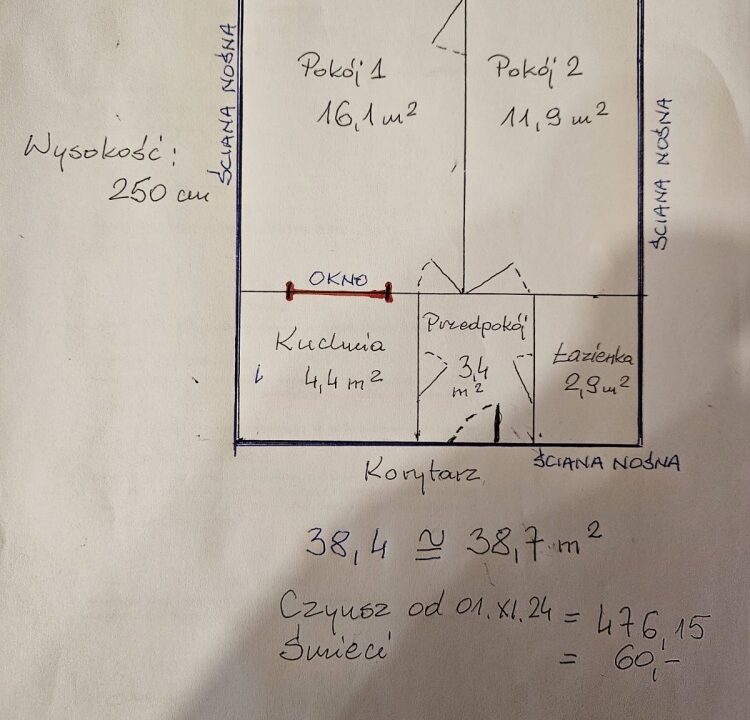 Pokój 1
16,1 m²
Pokój 2
11,9 m²
ŚCIANA NOŚNA
ŚCIANA NOŚNA
Wysokość:
250 cm
OKNO
Kuchnia
4,4 m²
Przedpokój
3,4
m²
Łazienka
2,9 m²
ŚCIANA NOŚNA
Korytarz
38,4 ≅ 38,7 m²
Czynsz od 01.XI.24 = 476,15
Śmieci = 60,-